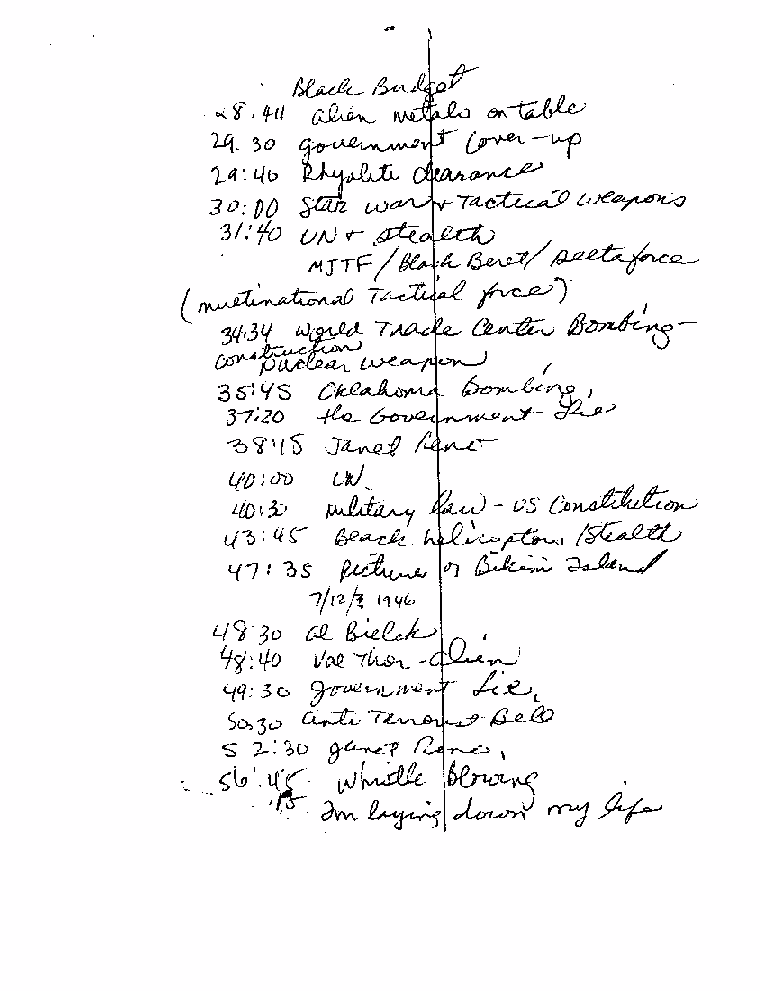 Black Budget
28:40 alien metals on table
29.30 government cover-up
29:40 Rhyolite clearance
30:00 Star war + Tactical weapons
31:40 UN + stealth
MJTF / Black Beret / Delta force
(multinational Tactical force)
34:34 World Trade Center Bombing -
construction nuclear weapon
35:45 Oklahoma Bombing,
37:20 the Government - Lie
38:15 Janet Reno
40:00 UN
40:30 military law - US Constitution
43:45 Black helicopters / Stealth
47:35 Pictures of Bikini Island
1946
48:30 Al Bielek
48:40 Val Thor - alien
49:30 government Lie,
50:30 anti Terrorist Bill
52:30 Janet Reno,
56:45 Whistle blowing
Im laying down my life